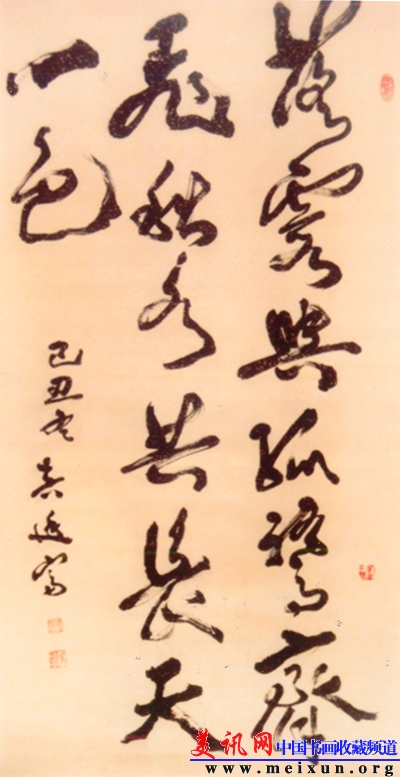 落霞与孤鹜齊
飞秋水共長天
一色
己丑冬
美讯网 中国书画收藏频道
www.meixun.org